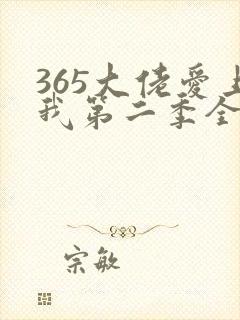 365大佬爱上
我第二季全
宗敏